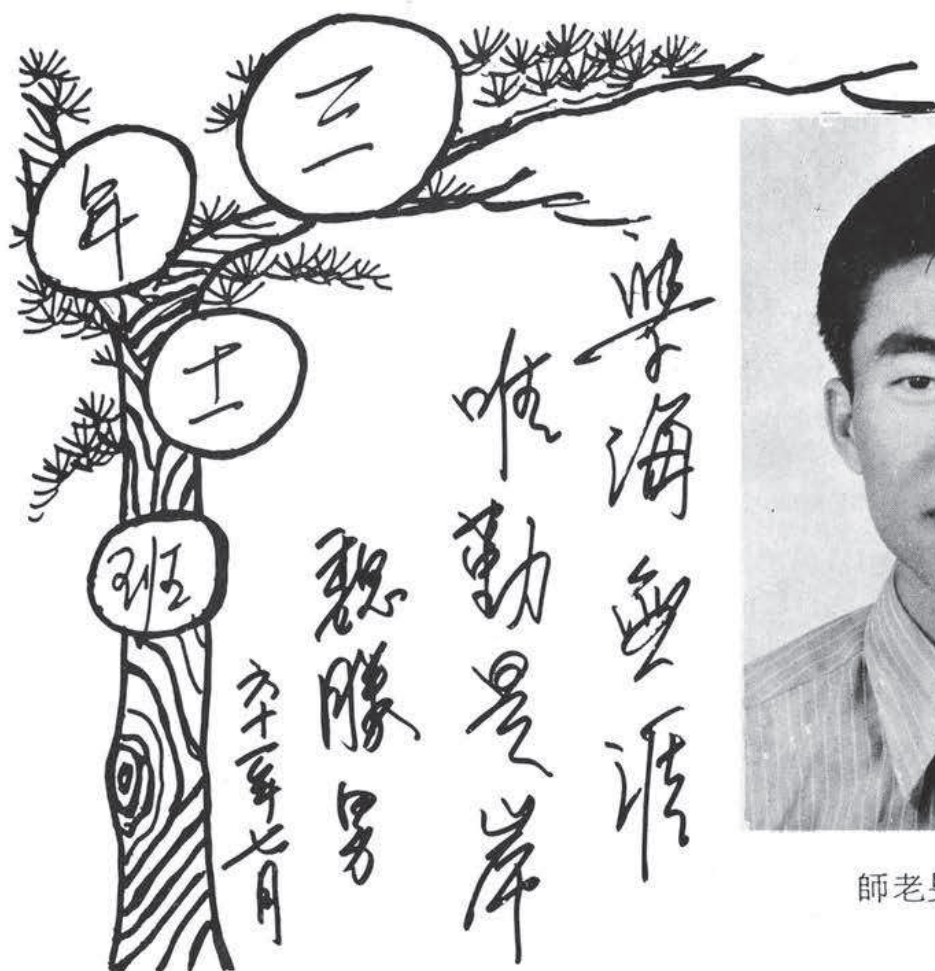 三
年
十一
班
學海無涯
唯勤是岸
魏勝男
六十一年七月
師老